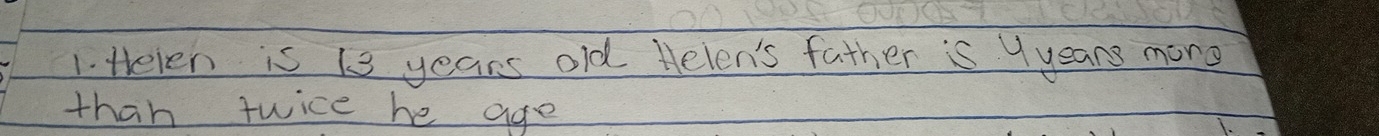 1. Helen is 13 years old Helen's father is 4 years more
than twice he age